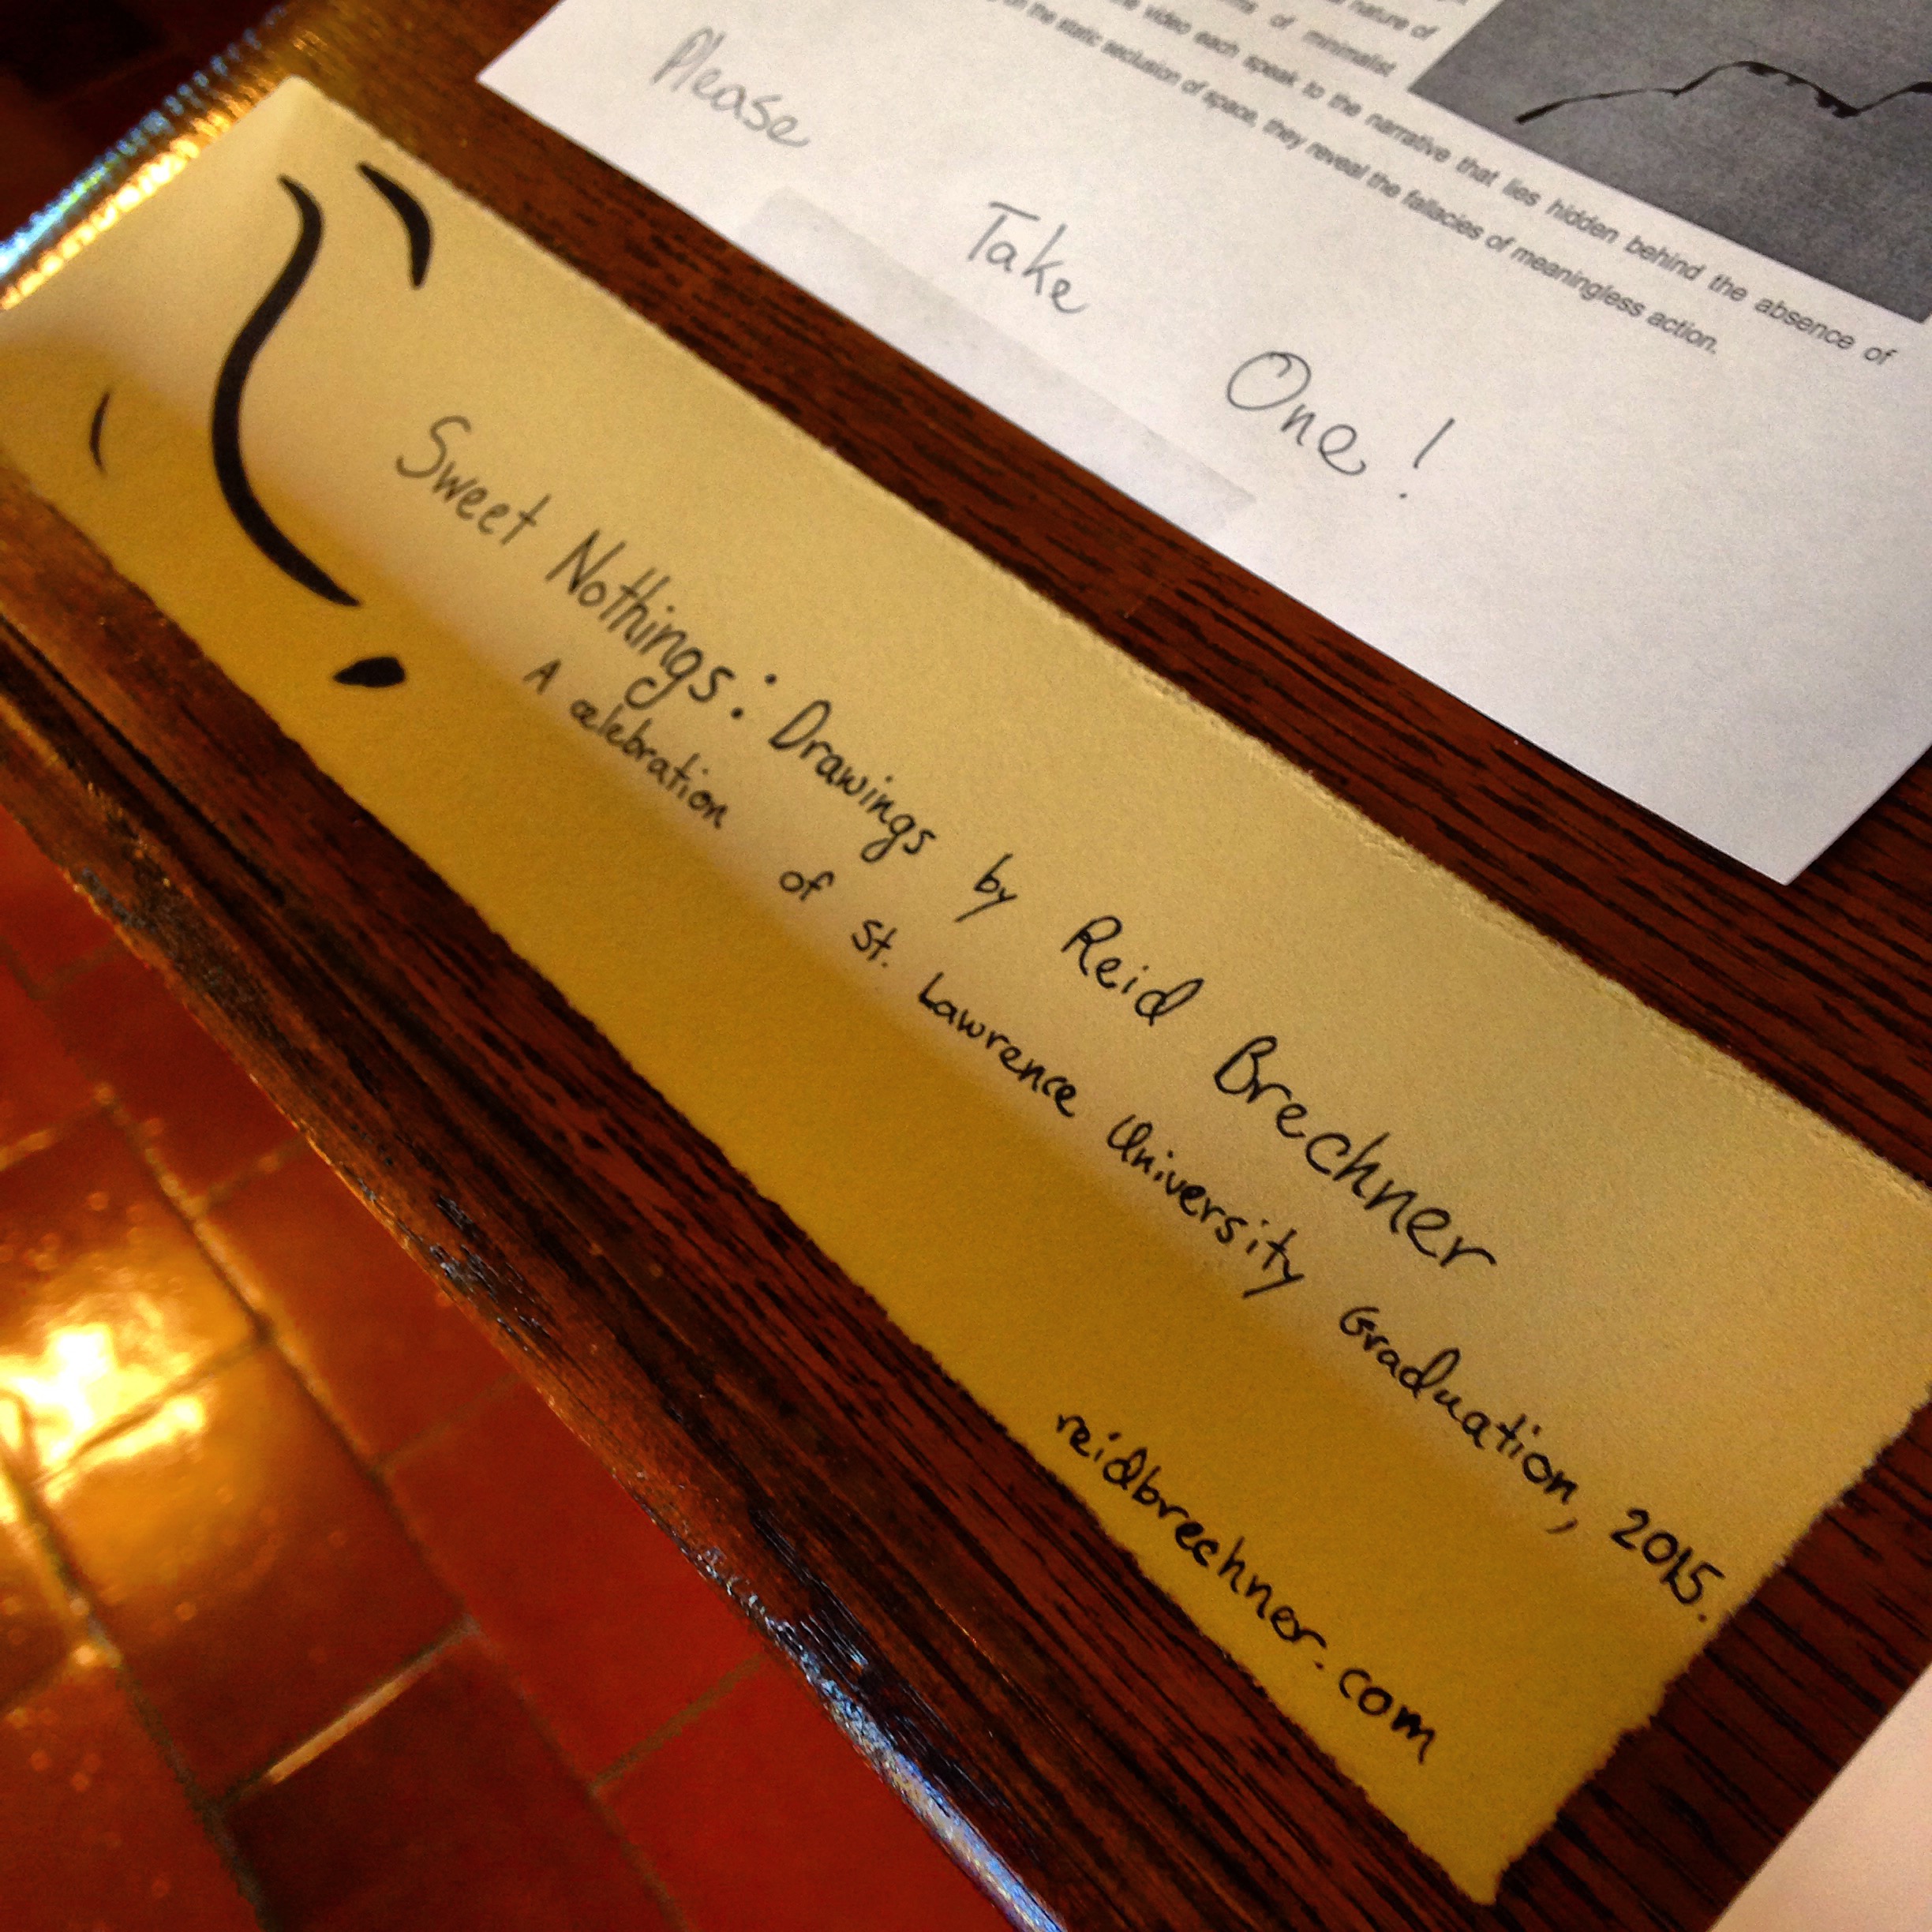 nature of
of minimalist
video each speak to the narrative that lies hidden behind the absence of
the static seclusion of space, they reveal the fallacies of meaningless action.
Please Take One!
Sweet Nothings: Drawings by Reid Brechner
A celebration of St. Lawrence University Graduation, 2015.
reidbrechner.com